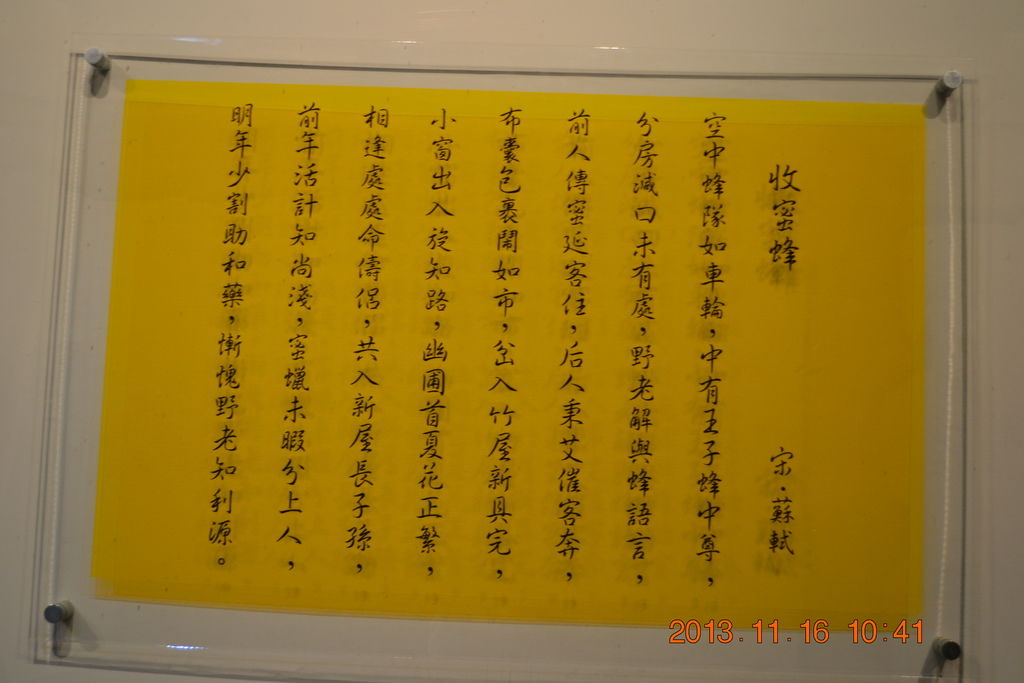 收蜜蜂
宋·蘇軾
空中蜂隊如車輪，中有王子蜂中尊，
分房減口未有處，野老解與蜂語言，
前人傳蜜延客住，后人秉艾催客奔，
布囊包裹鬧如市，岔入竹屋新具完，
小窗出入旋知路，幽圃首夏花正繁，
相逢處處命儔侶，共入新屋長子孫，
前年活計知尚淺，蜜蠟未暇分上人，
明年少割助和藥，慚愧野老知利源。
2013.11.16 10:41